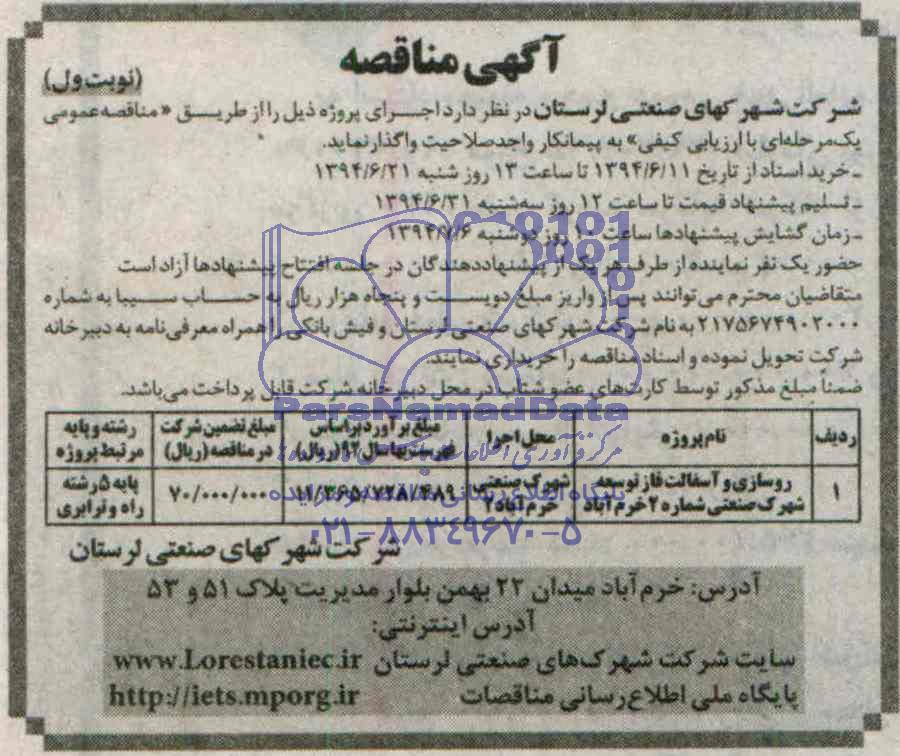 آگهی مناقصه
(نوبت ول)
شرکت شهرکهای صنعتی لرستان در نظر دارد اجرای پروژه ذیل را از طریق «مناقصه عمومی
یک‌مرحله‌ای با ارزیابی کیفی» به پیمانکار واجد صلاحیت واگذار نماید.
ـ خرید اسناد از تاریخ ۱۳۹۴/۶/۱۱ تا ساعت ۱۳ روز شنبه ۱۳۹۴/۶/۲۱
ـ تسلیم پیشنهاد قیمت تا ساعت ۱۲ روز سه‌شنبه ۱۳۹۴/۶/۳۱
ـ زمان گشایش پیشنهادها ساعت روز دوشنبه
حضور یک نفر نماینده از طرف هر یک از پیشنهاددهندگان در جلسه افتتاح پیشنهادها آزاد است
متقاضیان محترم می‌توانند پس از واریز مبلغ دویست و پنجاه هزار ریال به حساب سیبا به شماره
۲۱۷۵۶۷۴۹۰۲۰۰۰ به نام شرکت شهرکهای صنعتی لرستان و فیش بانکی را همراه معرفی‌نامه به دبیرخانه
شرکت تحویل نموده و اسناد مناقصه را خریداری نمایند.
ضمناً مبلغ مذکور توسط کارت‌های عضو شتاب در محل دبیرخانه شرکت قابل پرداخت می‌باشد.
ParsNamadData
ردیف نام پروژه محل اجرا مبلغ برآورد براساس مبلغ تضمین شرکت رشته و پایه
فهرست بها سال ۹۲ (ریال) در مناقصه (ریال) مرتبط پروژه
۱ روسازی و آسفالت فاز توسعه شهرک صنعتی ۷۰/۰۰۰/۰۰۰ پایه ۵ رشته
شهرک صنعتی شماره ۲ خرم آباد خرم آباد ۲ راه و ترابری
۰۲۱-۸۸۳۴۹۶۷۰-۵
شرکت شهرکهای صنعتی لرستان
آدرس: خرم آباد میدان ۲۲ بهمن بلوار مدیریت پلاک ۵۱ و ۵۳
آدرس اینترنتی:
سایت شرکت شهرک‌های صنعتی لرستان www.Lorestaniec.ir
پایگاه ملی اطلاع‌رسانی مناقصات http://iets.mporg.ir